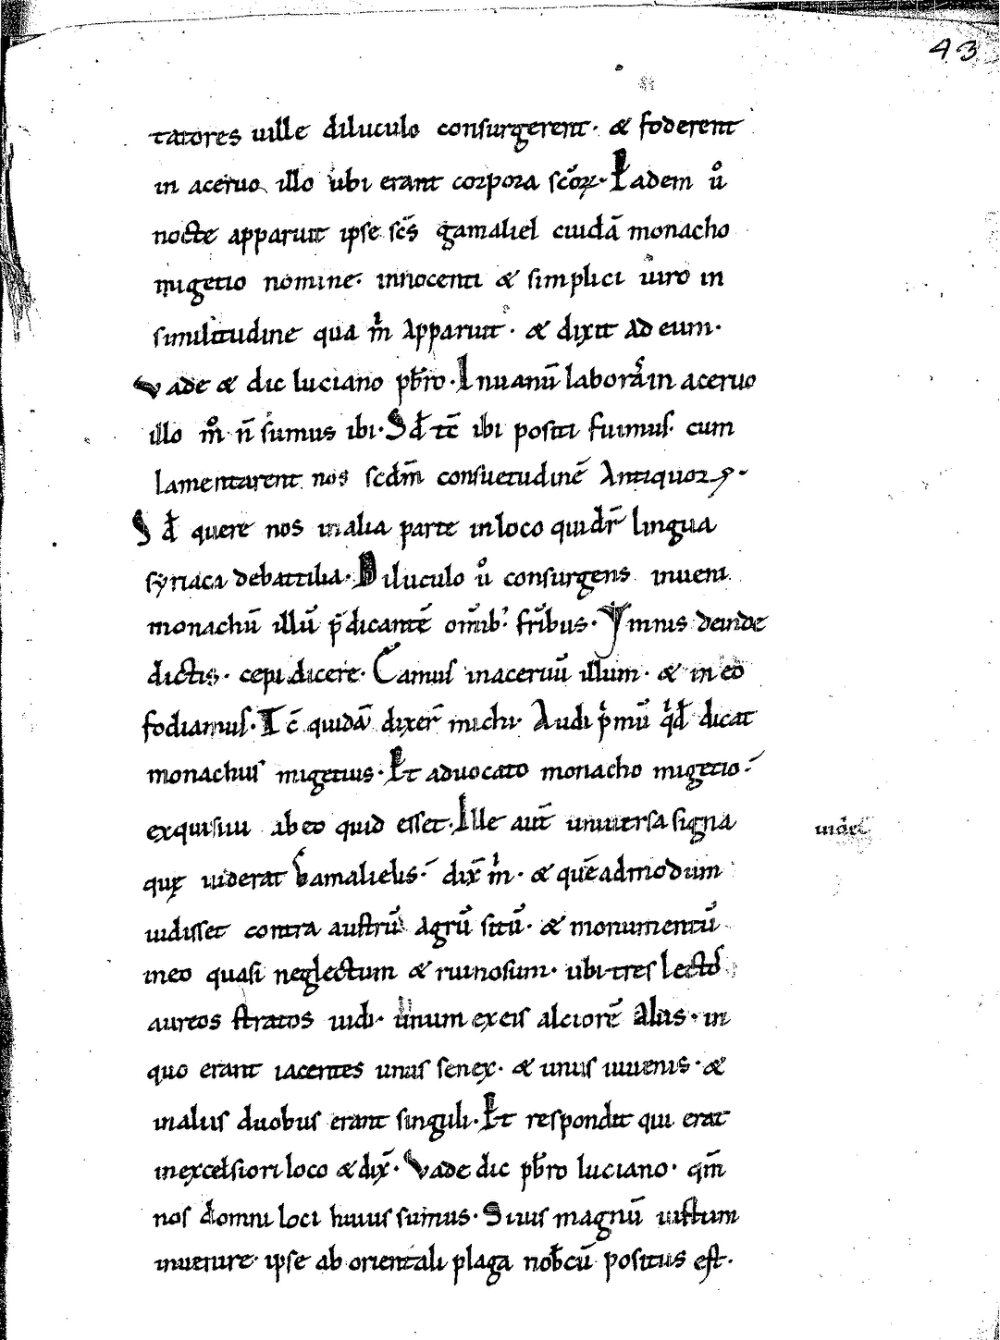 43
tatores uille diluculo consurgerent· & foderent
in aceruo illo ubi erant corpora scōꝝ· Eadem ů
nocte apparuit ipse scs̄ gamaliel cuidā monacho
migetio nomine· innocenti & simplici uiro in
similitudine qua m̊ apparuit· & dixit ad eum·
Vade & dic luciano pb̄ro· Inuanū laborat̄ in aceruo
illo m̊ n̄ sumus ibi· Sed tc̄ ibi positi fuimus cum
lamentarent nos scdm̄ consuetudinē Antiquoꝝ·
Sed quere nos in alia parte in loco qui dr̄ lingua
syriaca debatilia· Diluculo ů consurgens inueni
monachū illū p̄dicantē om̄ib; fr̄ibus· Ymnis deinde
dictis· cepi dicere· Eamus in aceruū illum· & in eo
fodiamus· Tc̄ quidā dixer̄ michi· Audi p̄mū qd̄ dicat
monachus migetius· Et aduocato monacho migetio·
exquisiui ab eo quid esset· Ille aut̄ uniuersa signa
uidel
quę uiderat Gamalielis· dix̄ m̊· & quēadmodum
uidisset contra austrū agrū sitū· & monumentū
in eo quasi neglectum & ruinosum· ubi tres lectos
aureos stratos uidi· unum ex eis alciorē aliis· in
quo erant iacentes unus senex· & unus iuuenis· &
in aliis duobus erant singuli· Et respondit qui erat
in excelsiori loco & dix̄· Vade dic pb̄ro luciano· qm̄
nos domni loci huius sumus· Si uis magnū iustum
inuenire· ipse ab orientali plaga nobcū positus est·